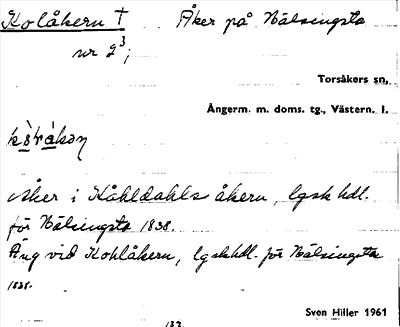 Kolåkern † Åker på Nälsingsta
nr 2³;
Torsåkers sn,
Ångerm. m. doms. tg., Västern. l.
Åker i Kåhldahls åkern, lgsk hdl.
för Nälsingsta 1838.
Äng vid Kohlåkern, lgsk hdl. för Nälsingsta
1838.
Sven Hiller 1961